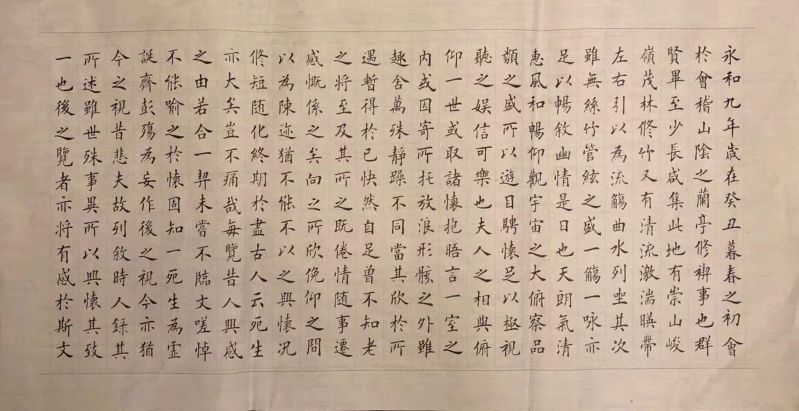 永和九年歲在癸丑暮春之初會
於會稽山陰之蘭亭修禊事也群
賢畢至少長咸集此地有崇山峻
嶺茂林修竹又有清流激湍暎帶
左右引以為流觴曲水列坐其次
雖無絲竹管絃之盛一觴一咏亦
足以暢敘幽情是日也天朗氣清
惠風和暢仰觀宇宙之大俯察品
類之盛所以遊目騁懷足以極視
聽之娛信可樂也夫人之相與俯
仰一世或取諸懷抱晤言一室之
內或因寄所托放浪形骸之外雖
趣舍萬殊靜躁不同當其欣於所
遇暫得於己快然自足曾不知老
之將至及其所之既倦情隨事遷
感慨係之矣向之所欣俛仰之間
以為陳迹猶不能不以之興懷況
修短隨化終期於盡古人云死生
亦大矣豈不痛哉每覽昔人興感
之由若合一契未嘗不臨文嗟悼
不能喻之於懷固知一死生為虛
誕齊彭殤為妄作後之視今亦猶
今之視昔悲夫故列敘時人錄其
所述雖世殊事異所以興懷其致
一也後之覽者亦將有感於斯文